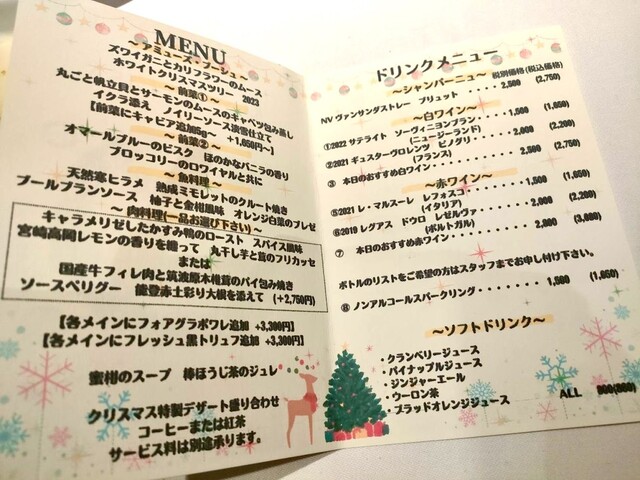 MENU
～アミューズ・ブーシュ～
ズワイガニとカリフラワーのムース
ホワイトクリスマスツリー 2023
～前菜①～
丸ごと帆立貝とサーモンのムースのキャベツ包み蒸し
イクラ添え ノイリーソース淡雪仕立て
【前菜にキャビア追加5g～ +1,650円～】
～前菜②～
オマールブルーのビスク ほのかなバニラの香り
ブロッコリーのロワイヤルと共に
～魚料理～
天然寒ヒラメ 熟成ミモレットのクルート焼き
ブールブランソース 柚子と金柑風味 オレンジ白菜のブレゼ
～肉料理(一品お選び下さい)～
キャラメリゼしたかすみ鴨のロースト スパイス風味
宮崎高岡レモンの香りを纏って 丸干し芋と茸のフリカッセ
または
国産牛フィレ肉と筑波原木椎茸のパイ包み焼き
ソースペリグー 能登赤土彩り大根を添えて (+2,750円)
【各メインにフォアグラポワレ追加 +3,300円】
【各メインにフレッシュ黒トリュフ追加 +3,300円】
蜜柑のスープ 棒ほうじ茶のジュレ
クリスマス特製デザート盛り合わせ
コーヒーまたは紅茶
サービス料は別途承ります。
ドリンクメニュー
～シャンパーニュ～ 税別価格(税込価格)
NV ヴァンサングストレー ブリュット・・・・2,500 (2,750)
～白ワイン～
①2022 サテライト ソーヴィニヨンブラン・・・・1,500 (1,650)
(ニュージーランド)
②2021 ギュスターヴロレンツ ピノグリ・・・・2,000 (2,200)
(フランス)
③ 本日のおすすめ白ワイン・・・・2,500 (2,750)
～赤ワイン～
⑤2021 レ・マルスーレ レフォスコ・・・・1,500 (1,650)
(イタリア)
⑥2019 レグアス ドウロ レゼルヴァ・・・・2,000 (2,200)
(ポルトガル)
⑦ 本日のおすすめ赤ワイン・・・・2,800 (3,080)
ボトルのリストをご希望の方はスタッフまでお申し付け下さい。
⑧ ノンアルコールスパークリング・・・・1,500 (1,650)
～ソフトドリンク～
・クランベリージュース
・パイナップルジュース
・ジンジャーエール
・ウーロン茶
・ブラッドオレンジジュース
ALL